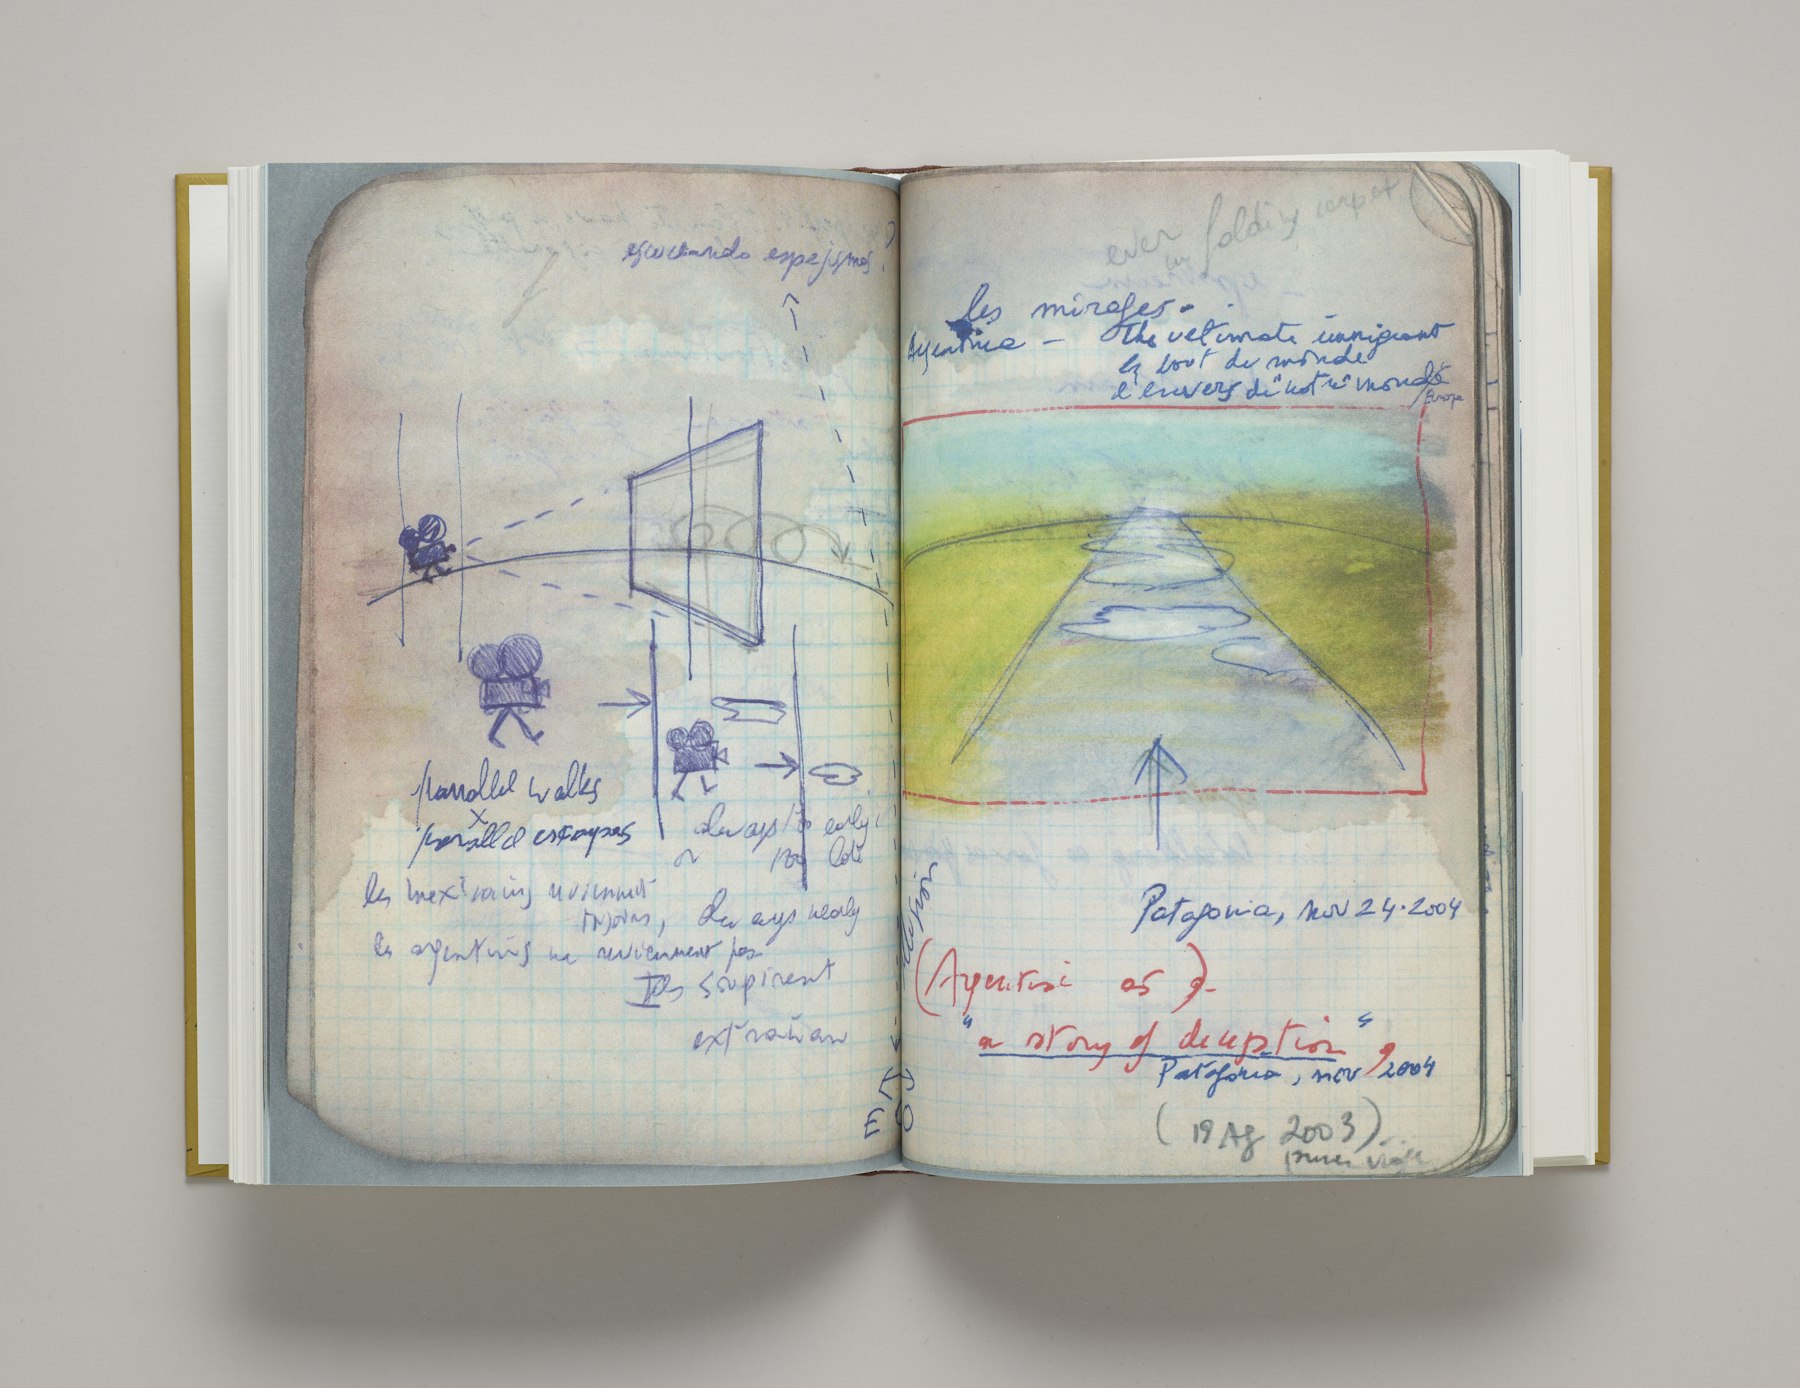 escuchando espejismos
parallel walks
x
parallel escapes
always too early
or too late
les mexicains reviennent
toujours,
always nearly
les argentins ne reviennent pas
Ils soupirent
extrañan
E
O
illusion
ever
folding carpet
les mirages.
Argentina — The ultimate immigrant
le bout du monde
l'envers de "notre" monde
Europe
Patagonia, nov 24.2004
(Argentine as)
"a story of deception",
Patagonia, nov 2004
(19 Ag 2003)